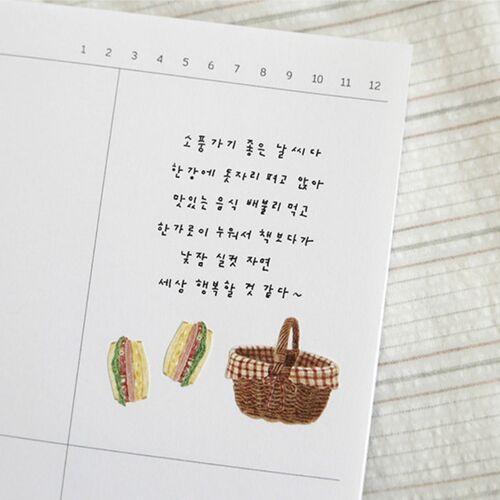 1 2 3 4 5 6 7 8 9 10 11 12
소풍가기 좋은 날씨다
한강에 돗자리 펴고 앉아
맛있는 음식 배불리 먹고
한가로이 누워서 책보다가
낮잠 실컷 자면
세상 행복할 것 같다~